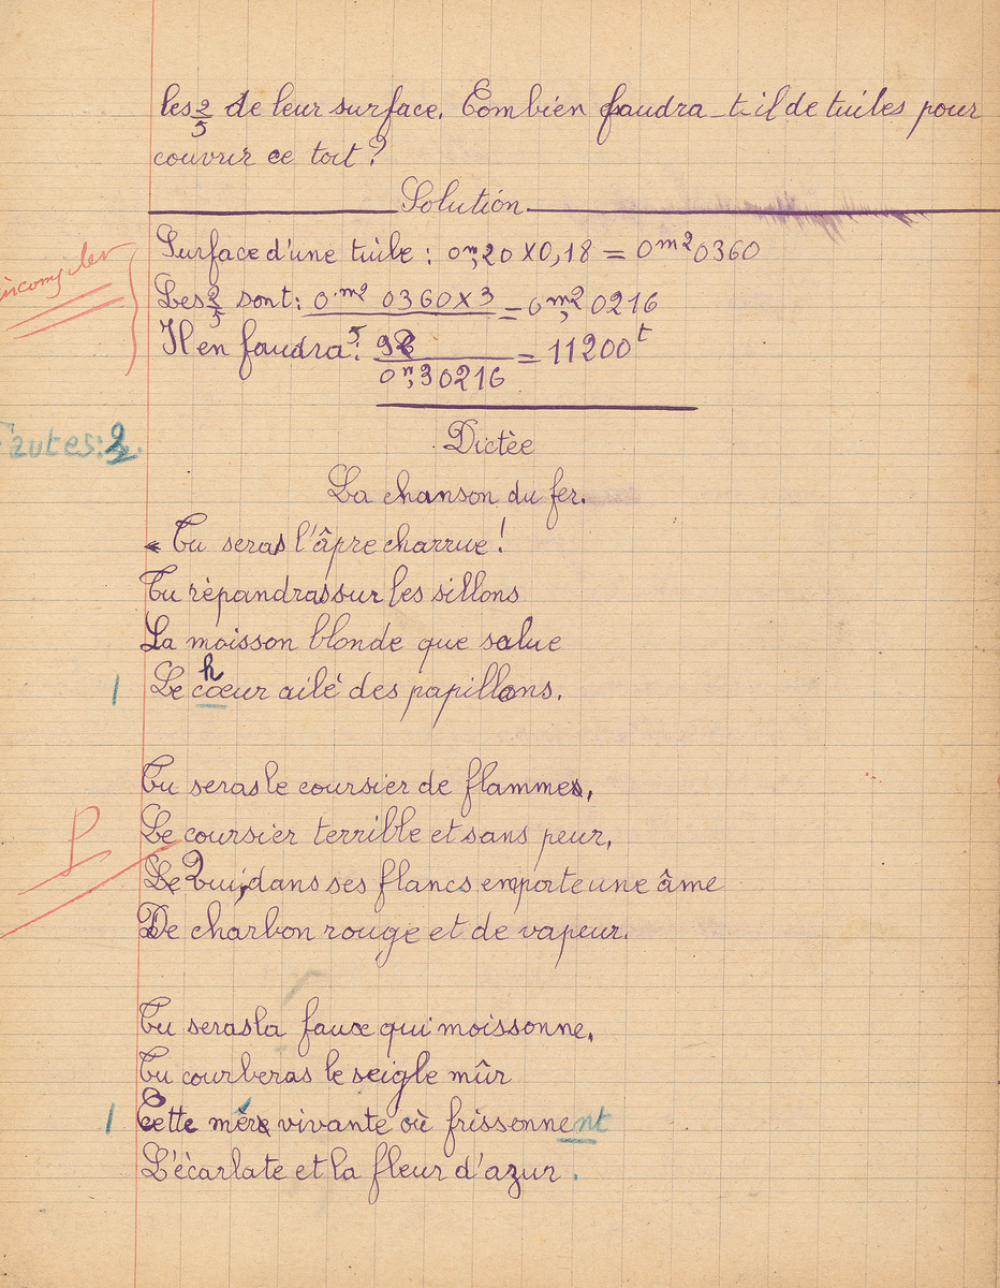 les 2/5 de leur surface. Combien faudra-t-il de tuiles pour
couvrir ce toit ?
Solution
incomplet
Surface d'une tuile : 0m²,20 X 0,18 = 0m²0360
Les 3/5 sont : 0m² 0360 X 3 / 5 = 0m²,0216
Il en faudra : / 0m²,0216 = 11200t
Fautes : 2.
Dictée
La chanson du fer.
« Tu seras l'âpre charrue !
Tu répandras sur les sillons
La moisson blonde que salue
1 Le chœur ailé des papillons.
Tu seras le coursier de flammes,
Le coursier terrible et sans peur,
Qui, dans ses flancs emporte une âme
De charbon rouge et de vapeur.
Tu seras la faux qui moissonne,
Tu courberas le seigle mûr
1 Cette mer vivante où frissonnent
L'écarlate et la fleur d'azur.